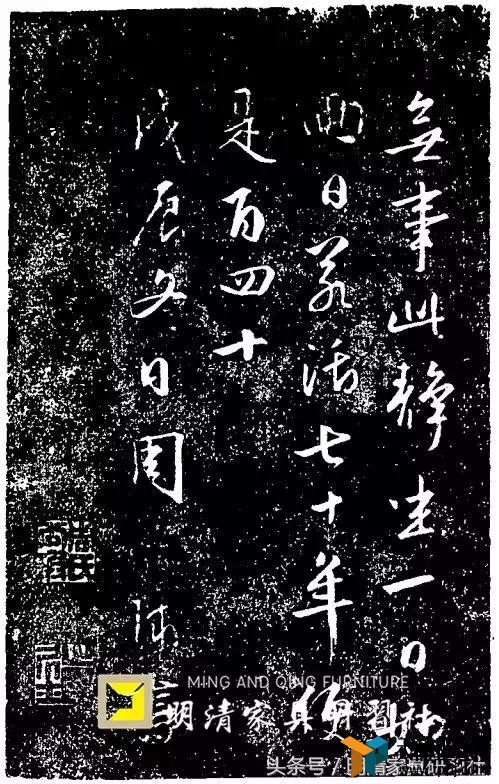 無事此靜坐一日
兩日若活七十年便
是百四十
戊辰冬日周
MING AND QING FURNITURE
明清家具研习社
头条号/明清家具研习社